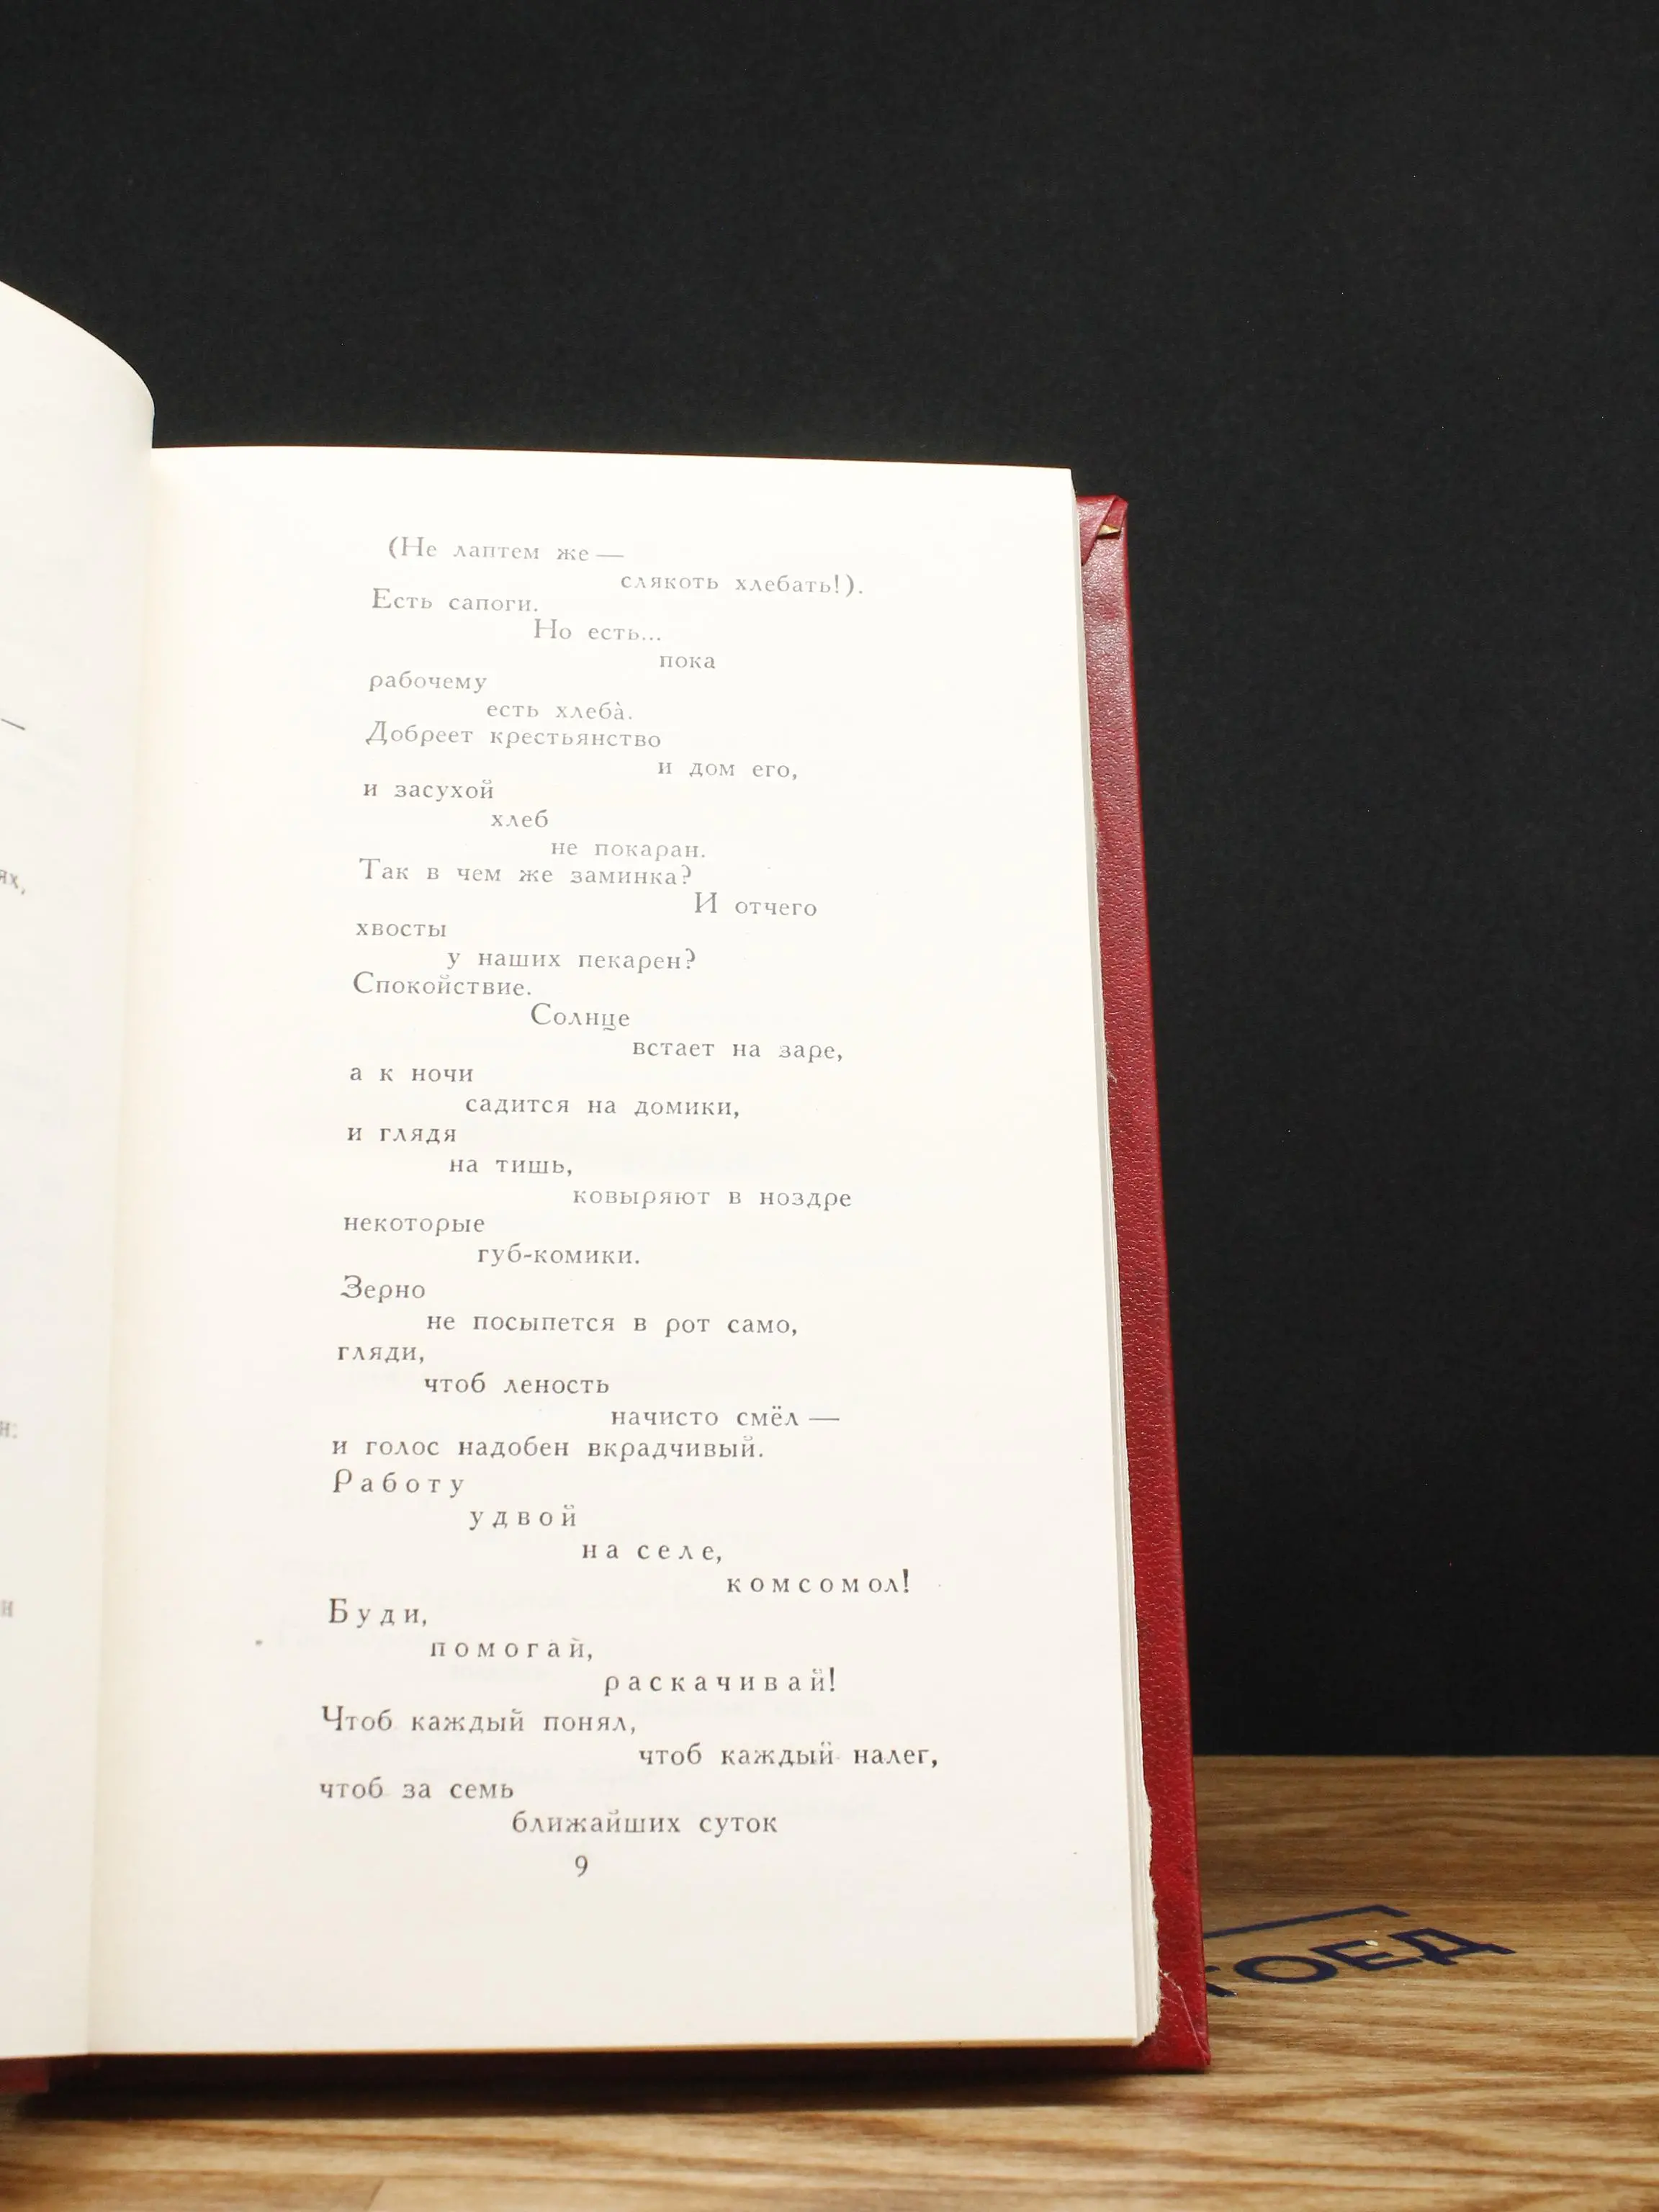 (Не лаптем же —
слякоть хлебать!).
Есть сапоги.
Но есть...
пока
рабочему
есть хлеба̀.
Добреет крестьянство
и дом его,
и засухой
хлеб
не покаран.
Так в чем же заминка?
И отчего
хвосты
у наших пекарен?
Спокойствие.
Солнце
встает на заре,
а к ночи
садится на домики,
и глядя
на тишь,
ковыряют в ноздре
некоторые
губ-комики.
Зерно
не посыпется в рот само,
гляди,
чтоб леность
начисто смёл —
и голос надобен вкрадчивый.
Работу
удвой
на селе,
комсомол!
Буди,
помогай,
раскачивай!
Чтоб каждый понял,
чтоб каждый налег,
чтоб за семь
ближайших суток
9